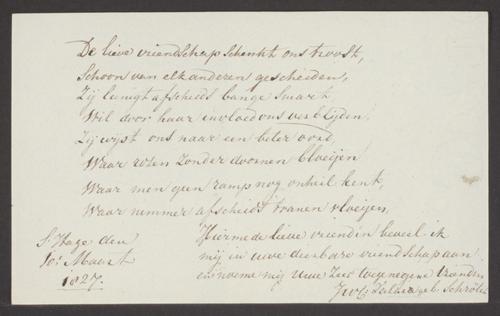 De lieve vriendschap schenkt ons troost,
Schoon van elkanderen gescheiden,
Zij lenigt afscheids bange smart
Wil door haar invloed ons verblijden,
Zij wijst ons naar een beter oord,
Waar rozen zonder doornen bloeijen
Waar men geen ramp nog onheil kent,
Waar nimmer afscheidt traanen vloeijen,
Hiermede lieve vriendin beveel ik
mij in uwe dierbare vriendschap aan
en noeme mij Uwe Zeer toegenegene Vriendin
geb. Schröder
S Hage den
10 Maart
1827.